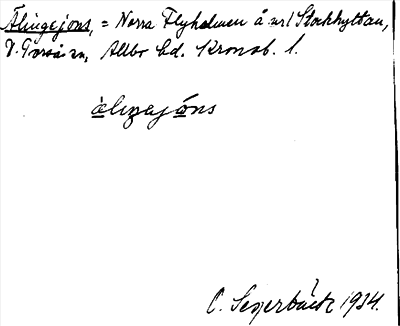 Älingejons, = Norra Flyholmen å url Stockhyltan,
V. Torsås sn, Allbo hd. Kronob. l.
älıŋejóns
C. Segerbäck 1934.